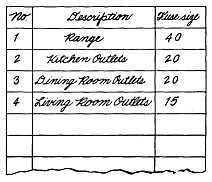 No Description Fuse size
1 Range 40
2 Kitchen Outlets 20
3 Dining Room Outlets 20
4 Living Room Outlets 15